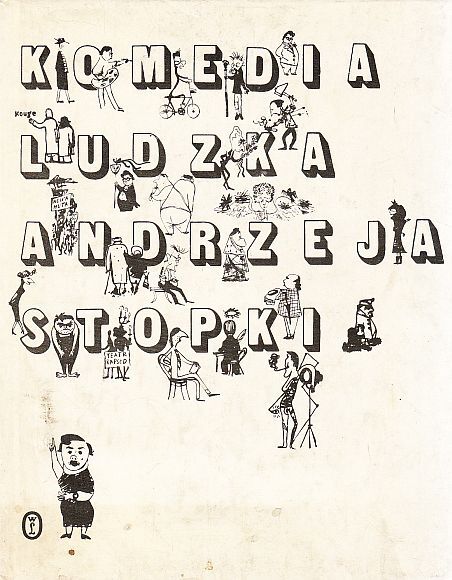 KOMEDIA
LUDZKA
ANDRZEJA
STOPKI
TEATR
WL